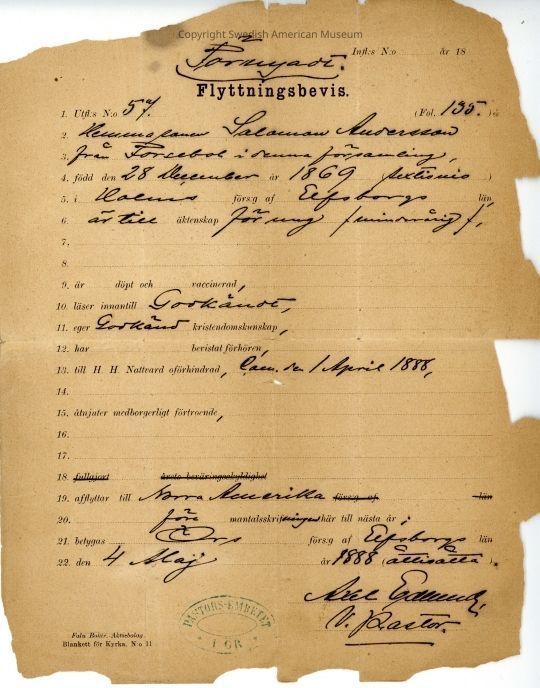 Copyright Swedish American Museum
Infl:s N:o år 18
Förnyadt.
Flyttningsbevis.
1. Utfl:s N:o 57. (Fol. 135.)
2. Hemmasonen Salomon Andersson
3. från Forsebol i denna församling,
4. född den 28 December år 1869 sextionio)
5. i Holms förs:g af Elfsborgs län,
6. är till äktenskap för ung (minderårig),
7.
8.
9. är döpt och vaccinerad,
10. läser innantill Godkändt,
11. eger Godkänd kristendomskunskap,
12. har bevistat förhören,
13. till H. H. Nattvard oförhindrad, Com. den 1 April 1888,
14.
15. åtnjuter medborgerligt förtroende,
16.
17.
18. fullgjort årets beväringsskyldighet
19. afflyttar till Norra Amerika förs:g af län
20. före mantalsskrifningen här till nästa år;
21. betygas Örs förs:g af Elfsborgs län
22. den 4 Maj år 1888 (åttiåtta).
Axel
V. Pastor.
PASTORS-EMBETET
I GR
Falu Boktr. Aktiebolag.
Blankett för Kyrka. N:o 11